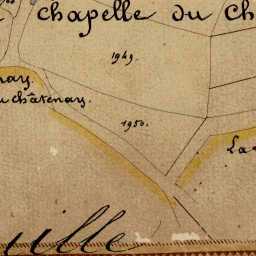 chapelle du Ch
1949.
nay.
u châtenay.
1950.
La
uille